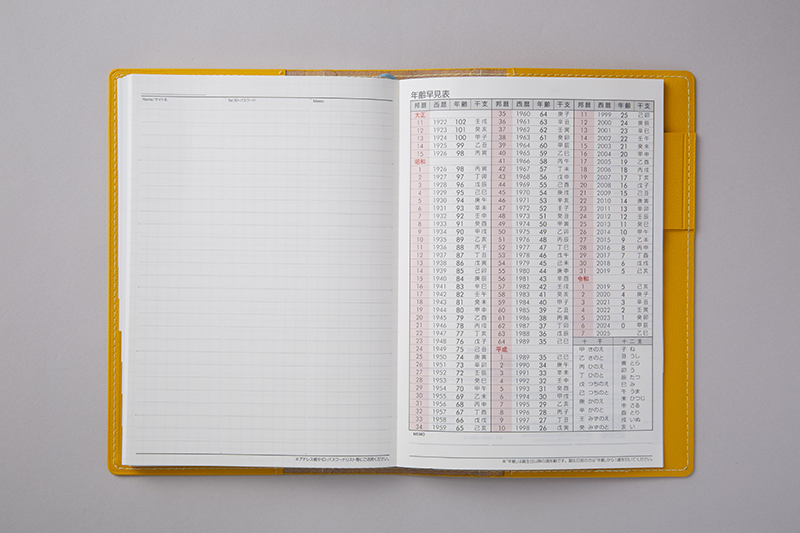 Name / サイト名 Tel・ID・パスワード Memo
※アドレス帳やID・パスワードリスト等にご活用ください。
年齢早見表
邦暦 西暦 年齢 干支
大正
11 1922 102 壬戌
12 1923 101 癸亥
13 1924 100 甲子
14 1925 99 乙丑
15 1926 98 丙寅
昭和
1 1926 98 丙寅
2 1927 97 丁卯
3 1928 96 戊辰
4 1929 95 己巳
5 1930 94 庚午
6 1931 93 辛未
7 1932 92 壬申
8 1933 91 癸酉
9 1934 90 甲戌
10 1935 89 乙亥
11 1936 88 丙子
12 1937 87 丁丑
13 1938 86 戊寅
14 1939 85 己卯
15 1940 84 庚辰
16 1941 83 辛巳
17 1942 82 壬午
18 1943 81 癸未
19 1944 80 甲申
20 1945 79 乙酉
21 1946 78 丙戌
22 1947 77 丁亥
23 1948 76 戊子
24 1949 75 己丑
25 1950 74 庚寅
26 1951 73 辛卯
27 1952 72 壬辰
28 1953 71 癸巳
29 1954 70 甲午
30 1955 69 乙未
31 1956 68 丙申
32 1957 67 丁酉
33 1958 66 戊戌
34 1959 65 己亥
邦暦 西暦 年齢 干支
35 1960 64 庚子
36 1961 63 辛丑
37 1962 62 壬寅
38 1963 61 癸卯
39 1964 60 甲辰
40 1965 59 乙巳
41 1966 58 丙午
42 1967 57 丁未
43 1968 56 戊申
44 1969 55 己酉
45 1970 54 庚戌
46 1971 53 辛亥
47 1972 52 壬子
48 1973 51 癸丑
49 1974 50 甲寅
50 1975 49 乙卯
51 1976 48 丙辰
52 1977 47 丁巳
53 1978 46 戊午
54 1979 45 己未
55 1980 44 庚申
56 1981 43 辛酉
57 1982 42 壬戌
58 1983 41 癸亥
59 1984 40 甲子
60 1985 39 乙丑
61 1986 38 丙寅
62 1987 37 丁卯
63 1988 36 戊辰
64 1989 35 己巳
平成
1 1989 35 己巳
2 1990 34 庚午
3 1991 33 辛未
4 1992 32 壬申
5 1993 31 癸酉
6 1994 30 甲戌
7 1995 29 乙亥
8 1996 28 丙子
9 1997 27 丁丑
10 1998 26 戊寅
邦暦 西暦 年齢 干支
11 1999 25 己卯
12 2000 24 庚辰
13 2001 23 辛巳
14 2002 22 壬午
15 2003 21 癸未
16 2004 20 甲申
17 2005 19 乙酉
18 2006 18 丙戌
19 2007 17 丁亥
20 2008 16 戊子
21 2009 15 己丑
22 2010 14 庚寅
23 2011 13 辛卯
24 2012 12 壬辰
25 2013 11 癸巳
26 2014 10 甲午
27 2015 9 乙未
28 2016 8 丙申
29 2017 7 丁酉
30 2018 6 戊戌
31 2019 5 己亥
令和
1 2019 5 己亥
2 2020 4 庚子
3 2021 3 辛丑
4 2022 2 壬寅
5 2023 1 癸卯
6 2024 0 甲辰
7 2025 乙巳
十干 十二支
甲 きのえ
乙 きのと
丙 ひのえ
丁 ひのと
戊 つちのえ
己 つちのと
庚 かのえ
辛 かのと
壬 みずのえ
癸 みずのと
子 ね
丑 うし
寅 とら
卯 う
辰 たつ
巳 み
午 うま
未 ひつじ
申 さる
酉 とり
戌 いぬ
亥 い
MEMO
※"年齢"は誕生日以降の満年齢です。誕生日前の方は"年齢"から1歳を引いてください。